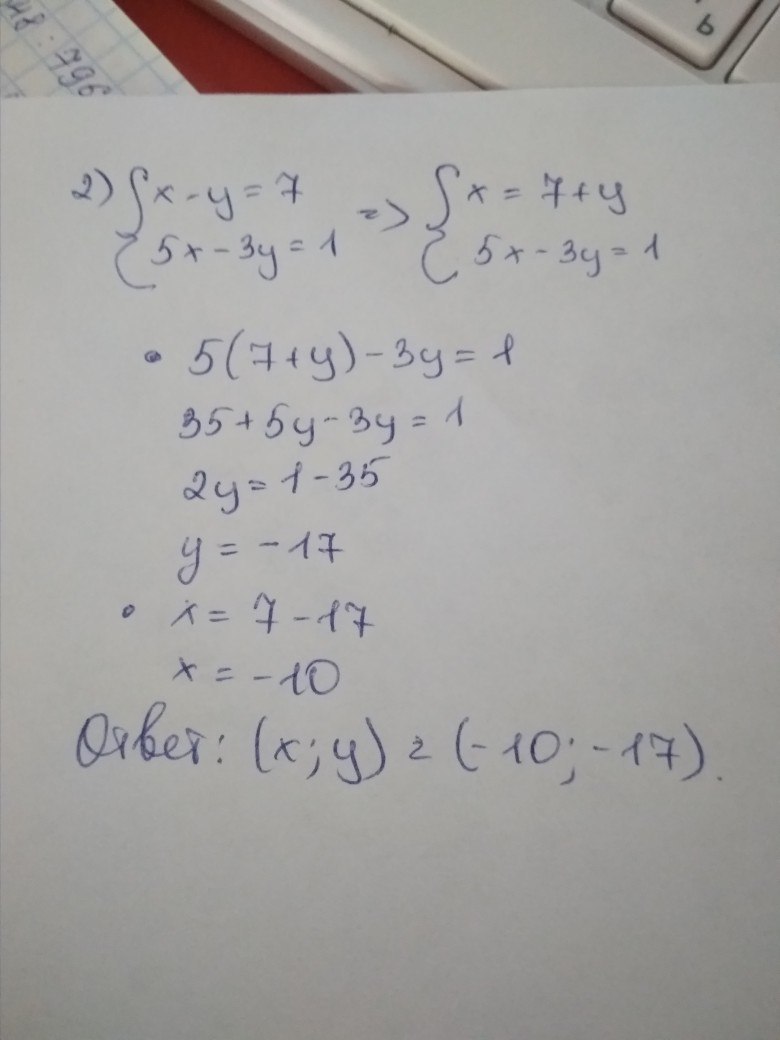 48 : 796
ь
2) { x - y = 7 => { x = 7 + y
5x - 3y = 1 5x - 3y = 1
• 5(7 + y) - 3y = 1
35 + 5y - 3y = 1
2y = 1 - 35
y = -17
• x = 7 - 17
x = -10
Ответ: (x; y) = (-10; -17).